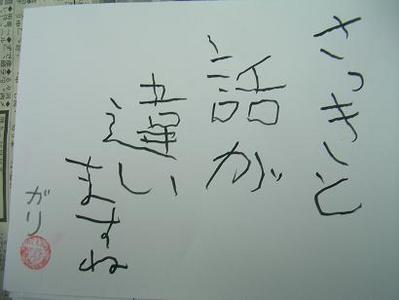 さっきと
話が
違い
ますね
がり